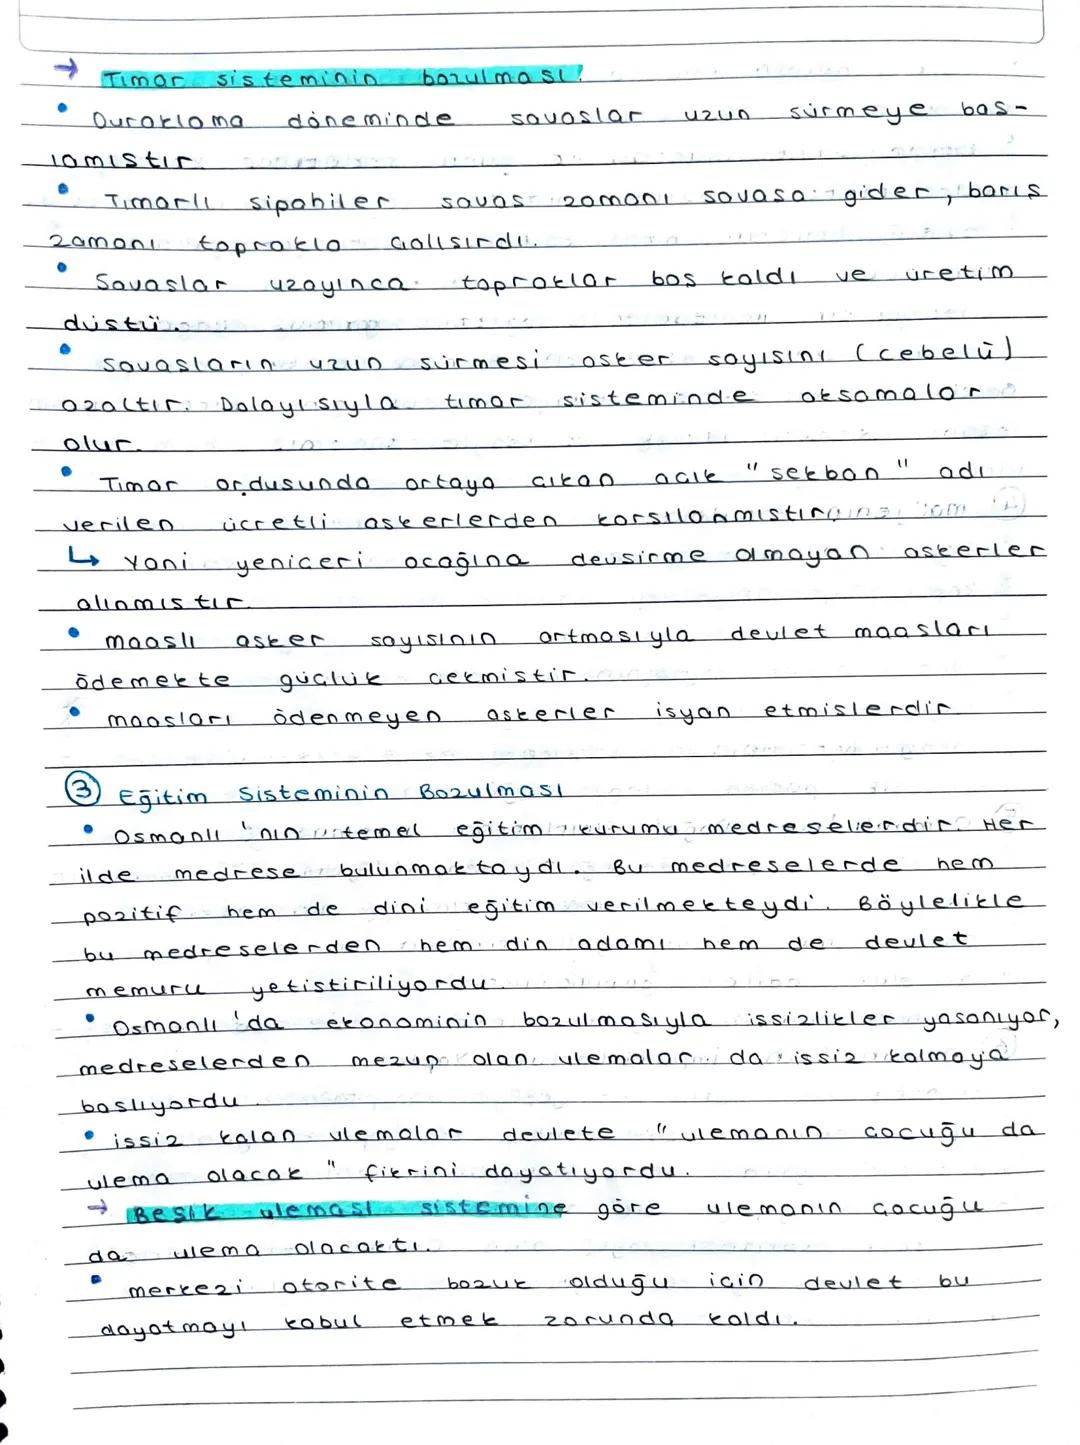 → Tımar sisteminin bozulması!
• Duraklama döneminde savaslar uzun sürmeye bas-
lamıstır.
• Tımarlı sipahiler savas zamanı savasa gider, barıs
zamanı toprakla calısırdı.
• Savaslar uzayınca topraklar bos kaldı ve üretim
düstü.
• Savasların uzun sürmesi asker sayısını (cebelü)
azaltır. Dolayısıyla tımar sisteminde aksamalar
olur.
• Tımar ordusunda ortaya cıkan acık "sekban" adı
verilen ücretli askerlerden karsılanmıstır.
↳ Yani yeniceri ocağına devsirme olmayan askerler
alınmıstır.
• maaslı asker sayısının artmasıyla devlet maasları
ödemekte güclük cekmistir.
• maasları ödenmeyen askerler isyan etmislerdir
③ Eğitim Sisteminin Bozulması
• Osmanlı'nın temel eğitim kurumu medreselerdir. Her
ilde medrese bulunmaktaydı. Bu medreselerde hem
pozitif hem de dini eğitim verilmekteydi. Böylelikle
bu medreselerden hem din adamı hem de devlet
memuru yetistiriliyordu.
• Osmanlı'da ekonominin bozulmasıyla issizlikler yasanıyor,
medreselerden mezun olan ulemalar da issiz kalmaya
baslıyordu.
• issiz kalan ulemalar devlete "ulemanın cocuğu da
ulema olacak" fikrini dayatıyordu.
→ Besik uleması sistemine göre ulemanın cocuğu
da ulema olacaktı.
• merkezi otorite bozuk olduğu icin devlet bu
dayatmayı kabul etmek zorunda kaldı.